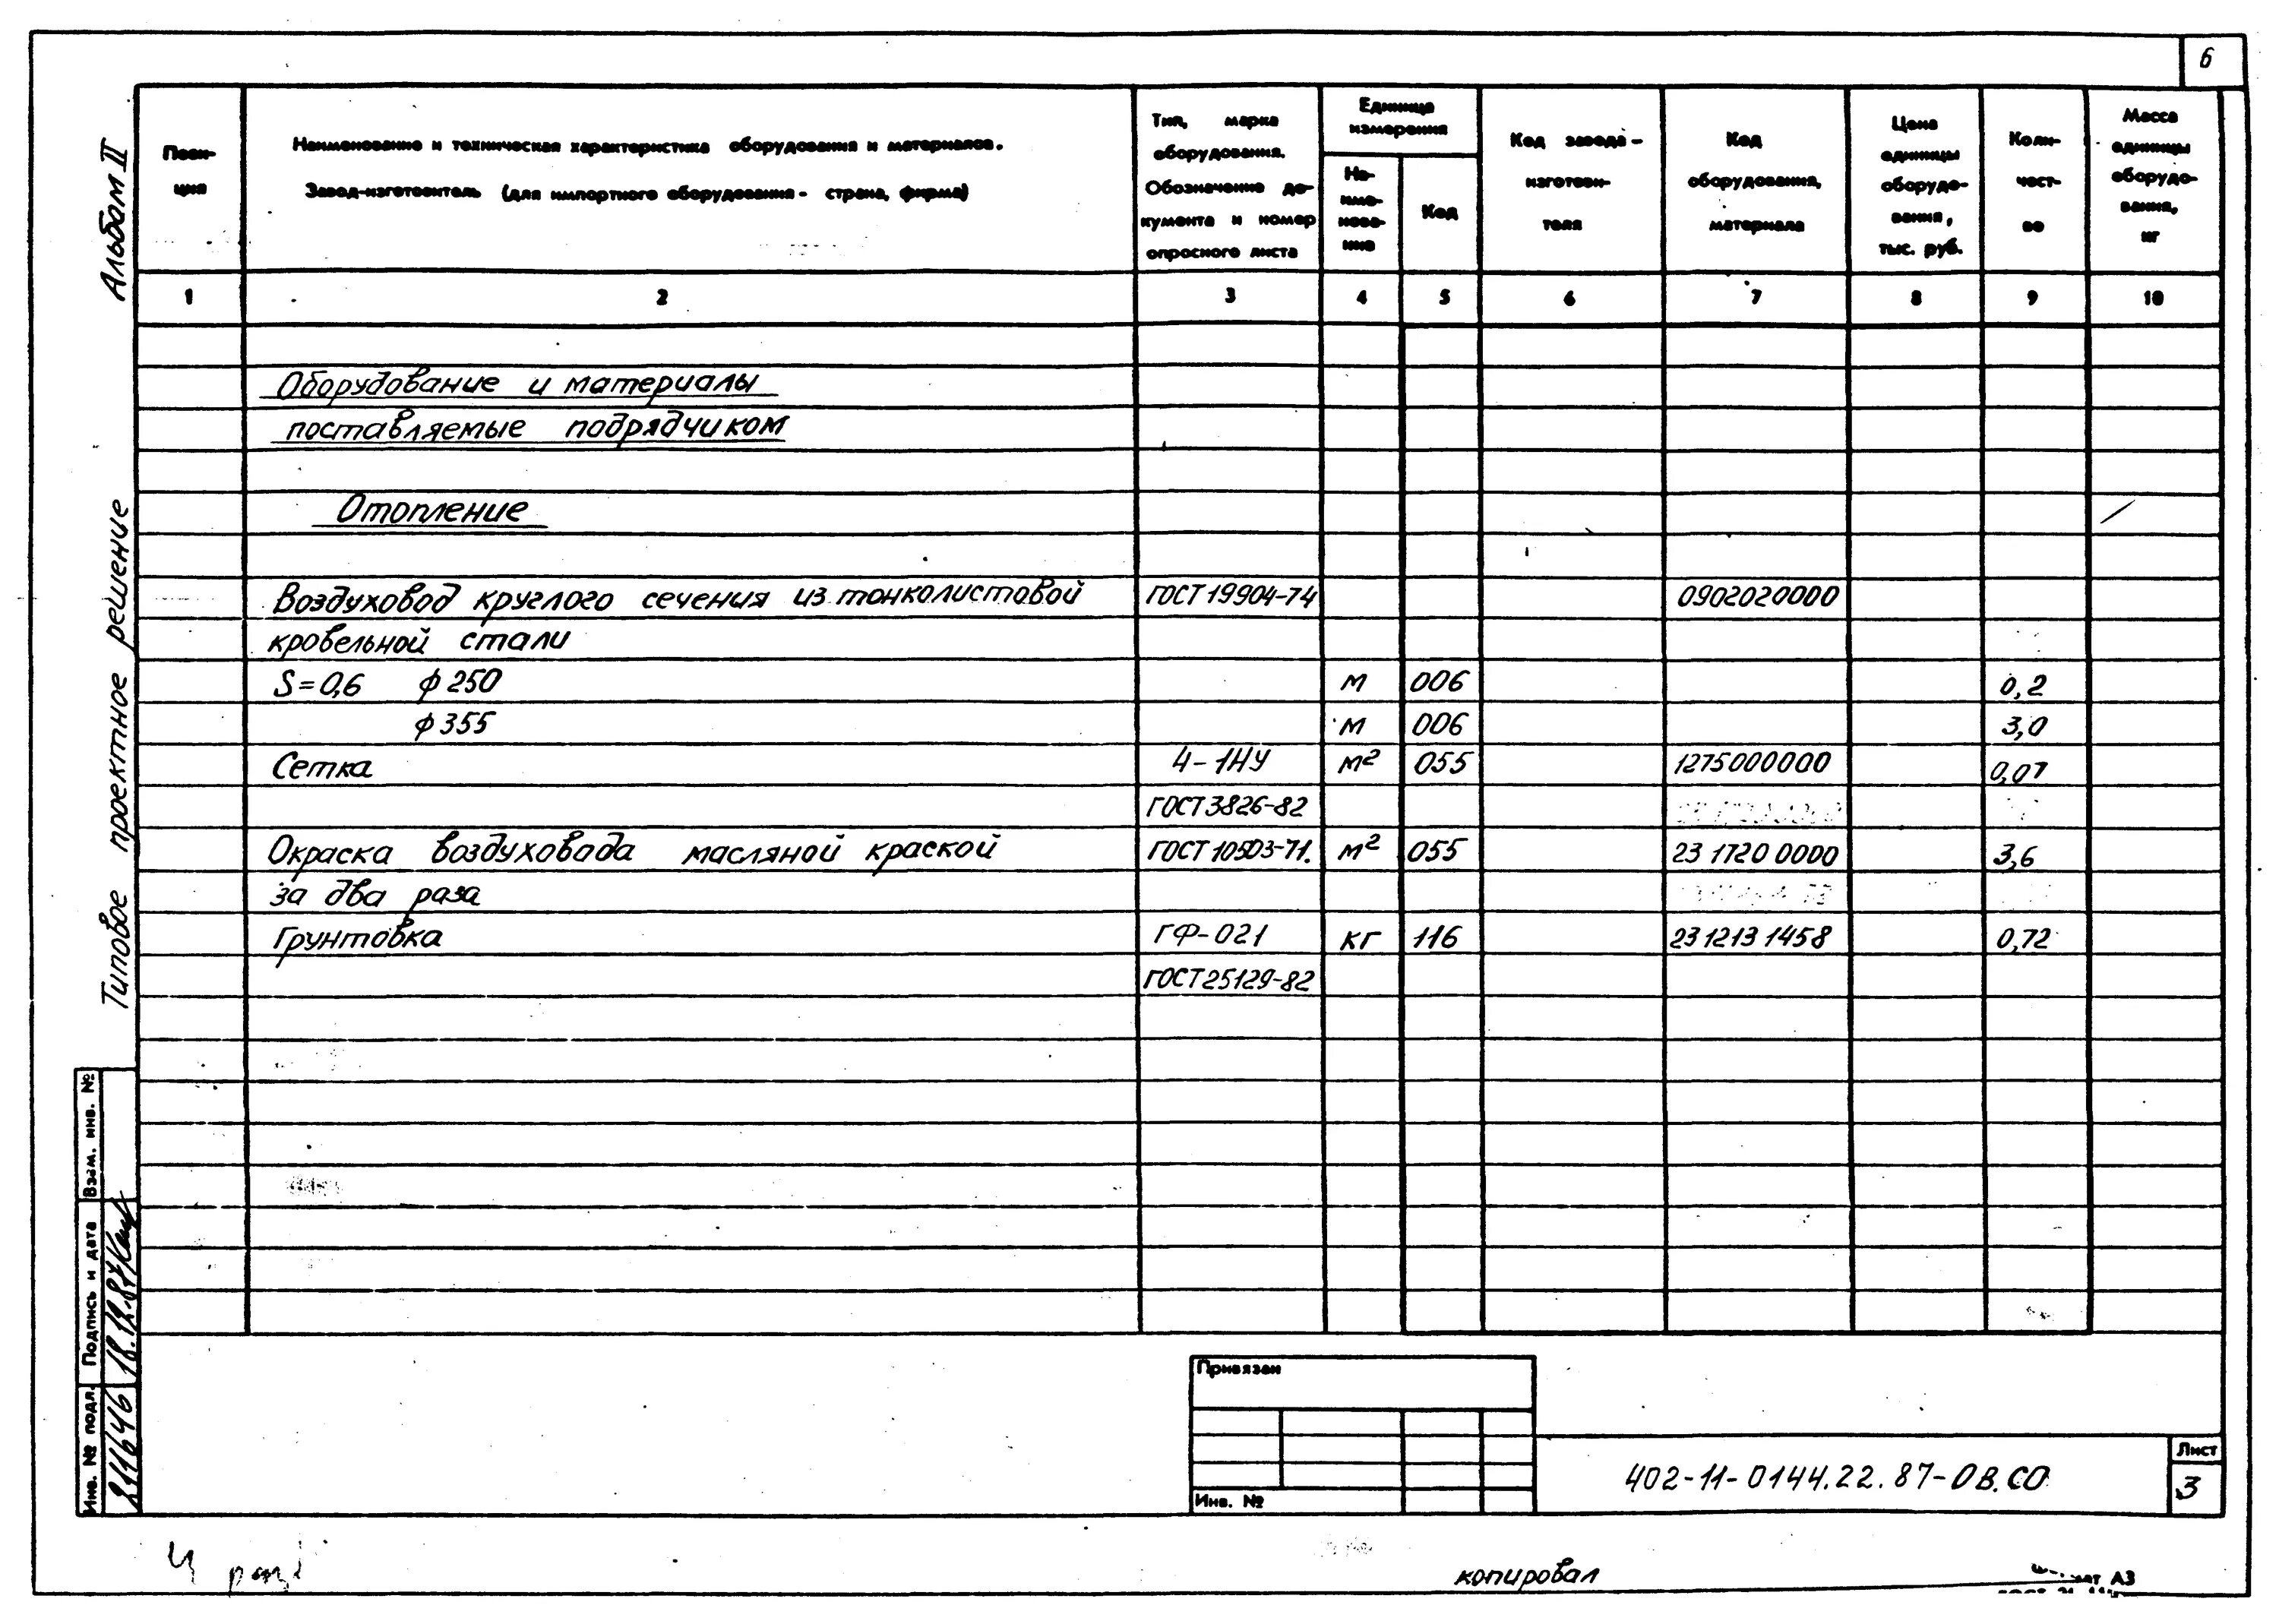 6
Альбом II
Типовое проектное решение
Пози-
ция
Наименование и техническая характеристика оборудования и материалов.
Завод-изготовитель (для импортного оборудования - страна, фирма)
Тип, марка
оборудования.
Обозначение до-
кумента и номер
опросного листа
Единица
измерения
На-
име-
нова-
ние
Код
Код завода-
изготови-
теля
Код
оборудования,
материала
Цена
единицы
оборудо-
вания,
тыс. руб.
Коли-
чест-
во
Масса
единицы
оборудо-
вания,
кг
1 2 3 4 5 6 7 8 9 10
Оборудование и материалы
поставляемые подрядчиком
Отопление
Воздуховод круглого сечения из тонколистовой ГОСТ 19904-74 0902020000
кровельной стали
S=0,6 ф 250 м 006 0,2
ф 355 м 006 3,0
Сетка 4-1НУ м² 055 1275000000 0,07
ГОСТ 3826-82
Окраска воздуховода масляной краской ГОСТ 10503-71. м² 055 23 1720 0000 3,6
за два раза
Грунтовка ГФ-021 кг 116 23 1213 1458 0,72
ГОСТ 25129-82
Взам. инв. №
Подпись и дата
18.12.87
Инв. № подл.
Привязан
Инв. №
402-11-0144.22.87-ОВ.СО
Лист
3
копировал
А3